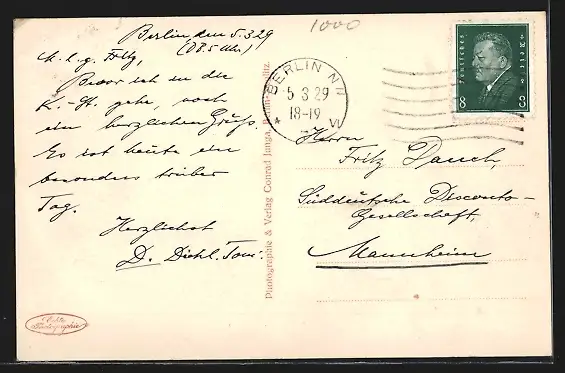 1000
Berlin den 5.3.29
(08.5 Uhr)
M. l. g. Fritz,
Bevor ich in die
K.-St. gehe, noch
ein herzlichen Gruß.
Es ist heute ein
besonders trüber
Tag.
Herzlichst
D. Dichl. Tom.
Echte
Photographie
Photographie & Verlag Conrad Junga, Berlin-
BERLIN N
5 3 29
18-19
VI
Deutsches Reich
8 8
Herrn
Fritz Dauch,
Süddeutsche Disconto-
Gesellschaft,
Mannheim